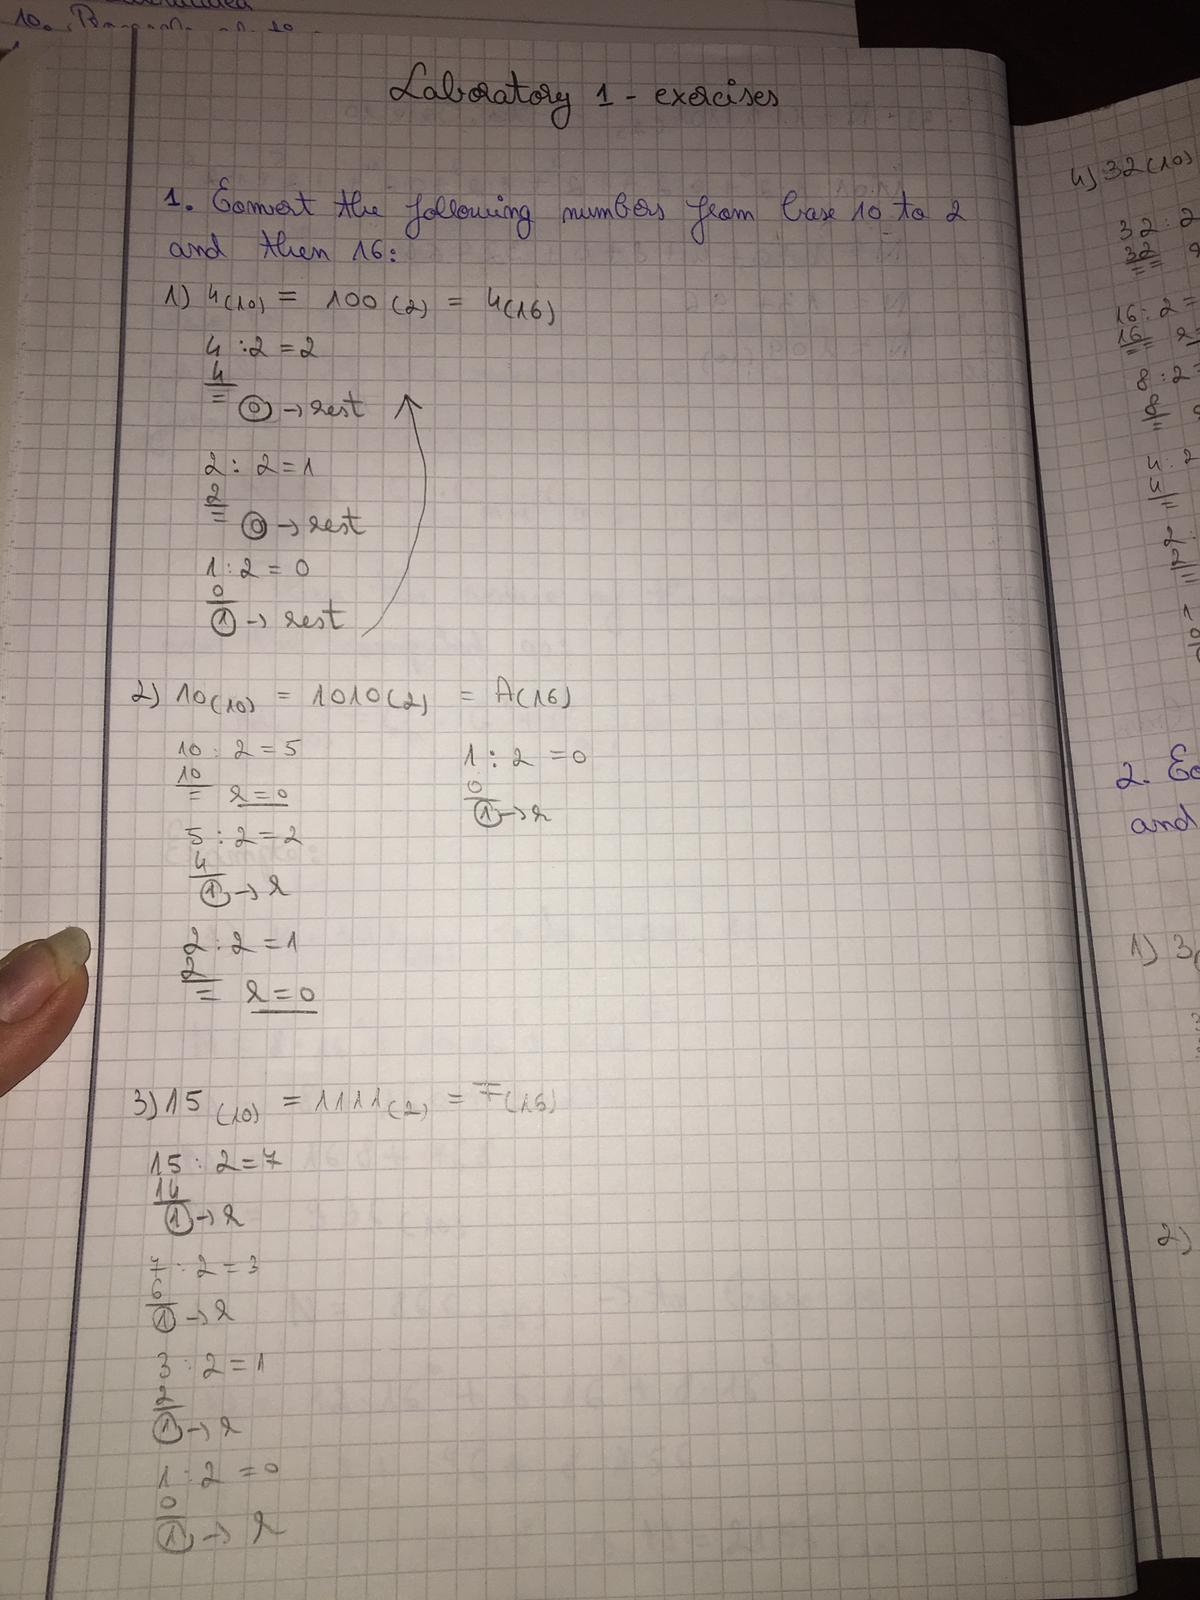 10.
Laboratory 1 - exercises
1. Convert the following numbers from base 10 to 2
and then 16:
1) 4(10) = 100(2) = 4(16)
4 : 2 = 2
4
= 0 → rest
2 : 2 = 1
2
= 0 → rest
1 : 2 = 0
0
1 → rest
2) 10(10) = 1010(2) = A(16)
10 : 2 = 5
10
= r = 0
5 : 2 = 2
4
1 → r
2 : 2 = 1
2
= r = 0
1 : 2 = 0
0
1 → r
3) 15(10) = 1111(2) = F(16)
15 : 2 = 7
14
1 → r
7 : 2 = 3
6
1 → r
3 : 2 = 1
2
1 → r
1 : 2 = 0
0
1 → r
4) 32(10)
32 : 2
32
16 : 2 =
16
8 : 2 =
8
4 : 2
4
2 :
2
1
0
2. Co
and
1) 3(
2)